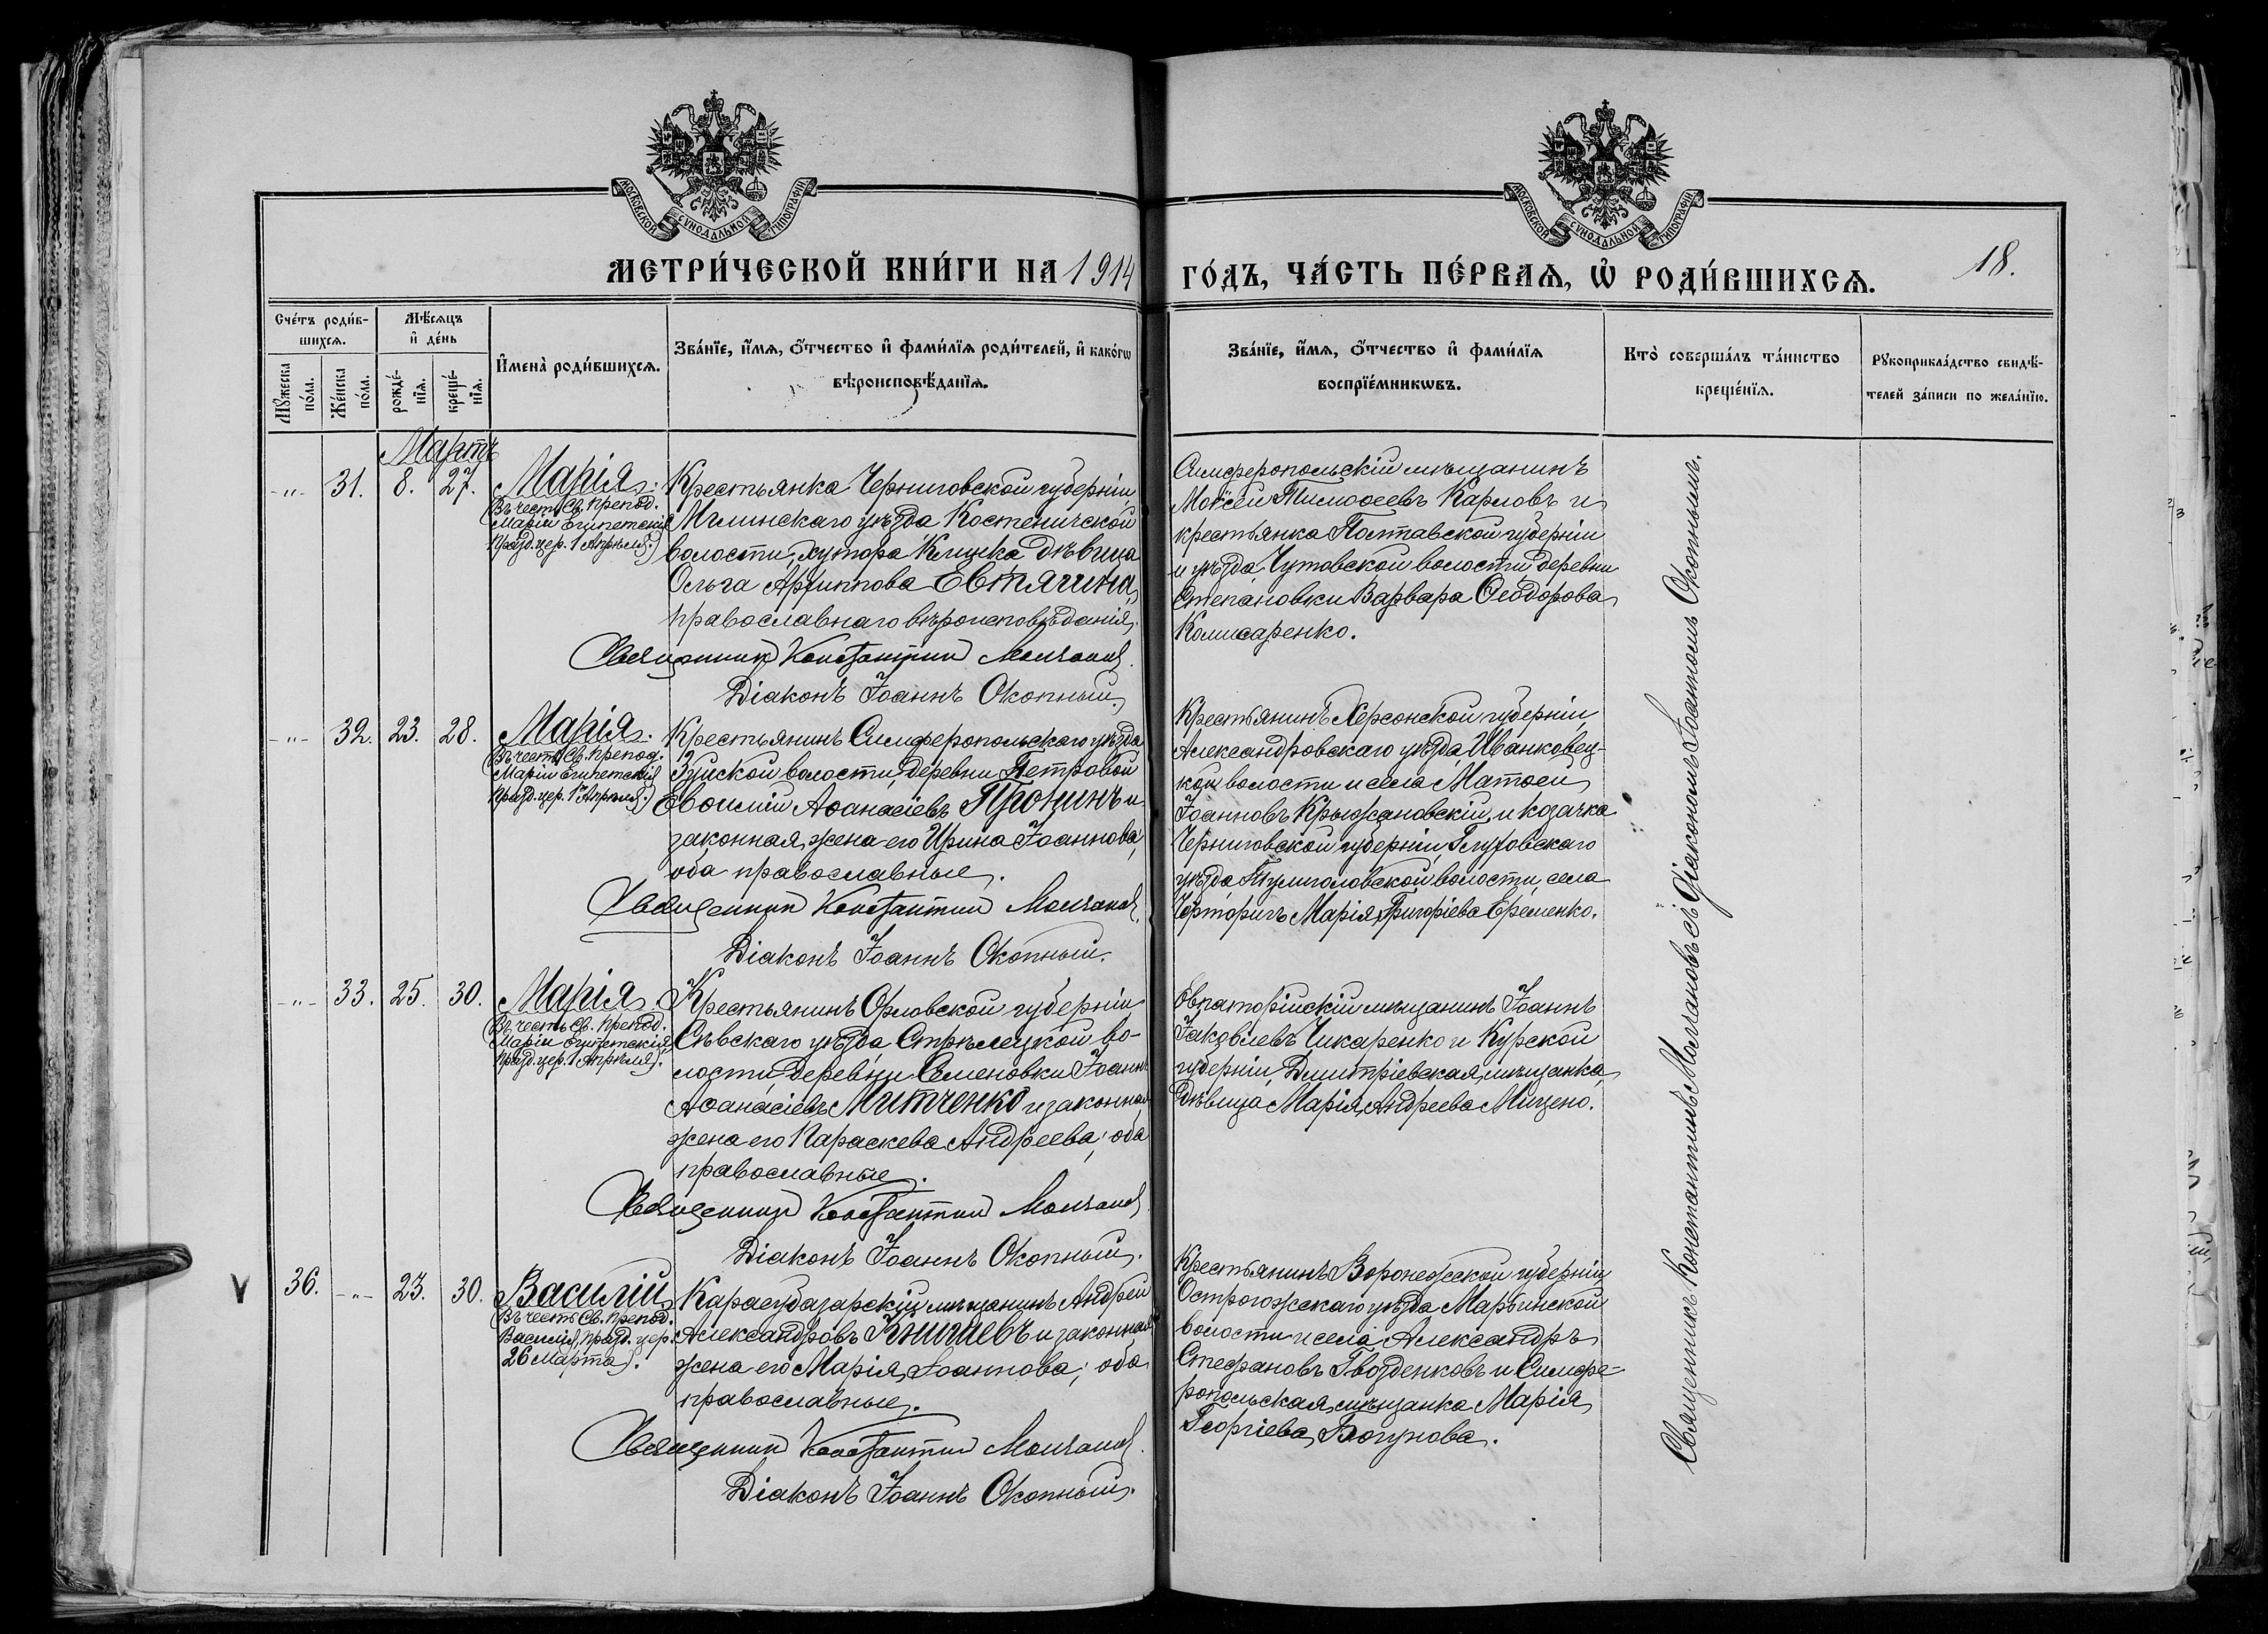 МОСКОВСКОЙ СѴНОДАЛЬНОЙ ТИПОГРАФІИ
МОСКОВСКОЙ СѴНОДАЛЬНОЙ ТИПОГРАФІИ
МЕТРИ́ЧЕСКОЙ КНИ́ГИ НА 1914
ГО́ДЪ, ЧА́СТЬ ПЕ́РВАѦ, Ѡ РОДИ́ВШИХСѦ.
18.
Сче́тъ роди́в-
шихсѧ.
Мꙋ́жеска по́ла.
Же́нска по́ла.
Мѣ́сѧцъ
и҆ де́нь
рожде́-
нїѧ.
креще́-
нїѧ.
И҆мена̀ роди́вшихсѧ.
Зва́нїе, и҆́мѧ, ѻ҆́тчество и҆ фами́лїѧ роди́телей, и҆ како́гѡ
вѣроисповѣ́данїѧ.
Зва́нїе, и҆́мѧ, ѻ҆́тчество и҆ фами́лїѧ
воспрїе́мникѡвъ.
Кто̀ соверша́лъ та́инство
креще́нїѧ.
Рꙋкоприкла́дство свидѣ́-
телей за́писи по жела́нїю.
Мартъ
-"- 31. 8. 27.
Марія.
Въ честь Св. препод.
Маріи Египетскія
празд. цер. 1 Апрѣля.)
Крестьянка Черниговской губерніи,
Мглинскаго уѣзда Костеничской
волости, хутора Клицка дѣвица
Ольга Архиппова Евтягина,
православнаго вѣроисповѣданія.
Священник Константин Молчанов.
Діаконъ Іоаннъ Окопный.
Симферопольскій мѣщанинъ
Моѵсей Тимоѳеевъ Карловъ и
крестьянка Полтавской губерніи
и уѣзда, Чутовской волости, деревни
Степановки Варвара Ѳеодорова
Комисаренко.
-"- 32. 23. 28.
Марія.
Въ честь Св. препод.
Маріи Египетскія
празд. цер. 1 Апрѣля.)
Крестьянинъ Симферопольскаго уѣзда
Зуйской волости, деревни Петровой
Евѳимій Аѳанасіевъ Пронинъ и
законная жена его Ирина Іоаннова,
оба православные.
Священник Константин Молчанов.
Діаконъ Іоаннъ Окопный.
Крестьянинъ Херсонской губерніи,
Александровскаго уѣзда, Иванковец-
кой волости и села Матѳей
Іоанновъ Крыжановскій и козачка
Черниговской губерніи, Глуховскаго
уѣзда, Тулиголовской волости, села
Чорторигъ Марія Григоріева Еременко.
-"- 33. 25. 30.
Марія.
Въ честь Св. препод.
Маріи Египетскія,
празд. цер. 1 Апрѣля).
Крестьянинъ Орловской губерніи
Сѣвскаго уѣзда, Стрѣлецкой во-
лости, деревни Семеновки Іоаннъ
Аѳанасіевъ Митченко и законная
жена его Параскева Андреева; оба
православные.
Священник Константин Молчанов
Діаконъ Іоаннъ Окопный.
Евпаторійскій мѣщанинъ Іоаннъ
Іаковлевъ Чикаренко и Курской
губерніи, Дмитріевская мѣщанка,
дѣвица Марія Андреева Мицено.
V 36. -"- 23. 30.
Василій
Въ честь Св. препод.
Василія, празд. цер.
26 Марта).
Карасубазарскій мѣщанинъ Андрей
Александровъ Книгаевъ и законная
жена его Марія Іоаннова; оба
православные.
Священник Константин Молчанов.
Діаконъ Іоаннъ Окопный.
Крестьянинъ Воронежской губерніи,
Острогожскаго уѣзда Марьинской
волости и села Александръ
Стефановъ Гвозденковъ и Симфе-
ропольская мѣщанка Марія
Георгіева Богунова.
Священникъ Константинъ Молчановъ съ діакономъ Іоанномъ Окопнымъ.